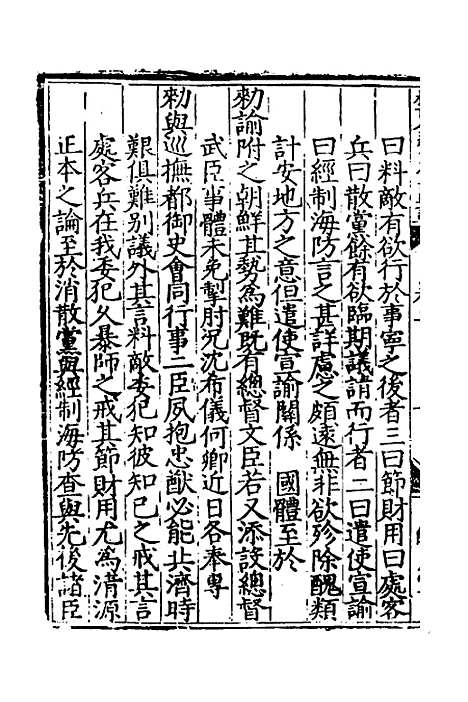 曰料敵有欲行於事寧之後者三曰節財用曰處客
兵曰散黨餘有欲臨期議請而行者二曰遣使宣諭
曰經制海防言之甚詳慮之頗遠無非欲殄除醜類
計安地方之意但遣使宣諭關係 國體至於
勑諭附之朝鮮其勢為難既有總督文臣若又添設總督
武臣事體未免掣肘况沈希儀何卿近日各奉專
勑與巡撫都御史會同行事二臣夙抱忠猷必能共濟時
艱俱難別議外其言料敵委犯知彼知己之戒其言
處客兵在我委犯久暴師之戒其節財用尤為清源
正本之論至於消散黨與經制海防查與先後諸臣